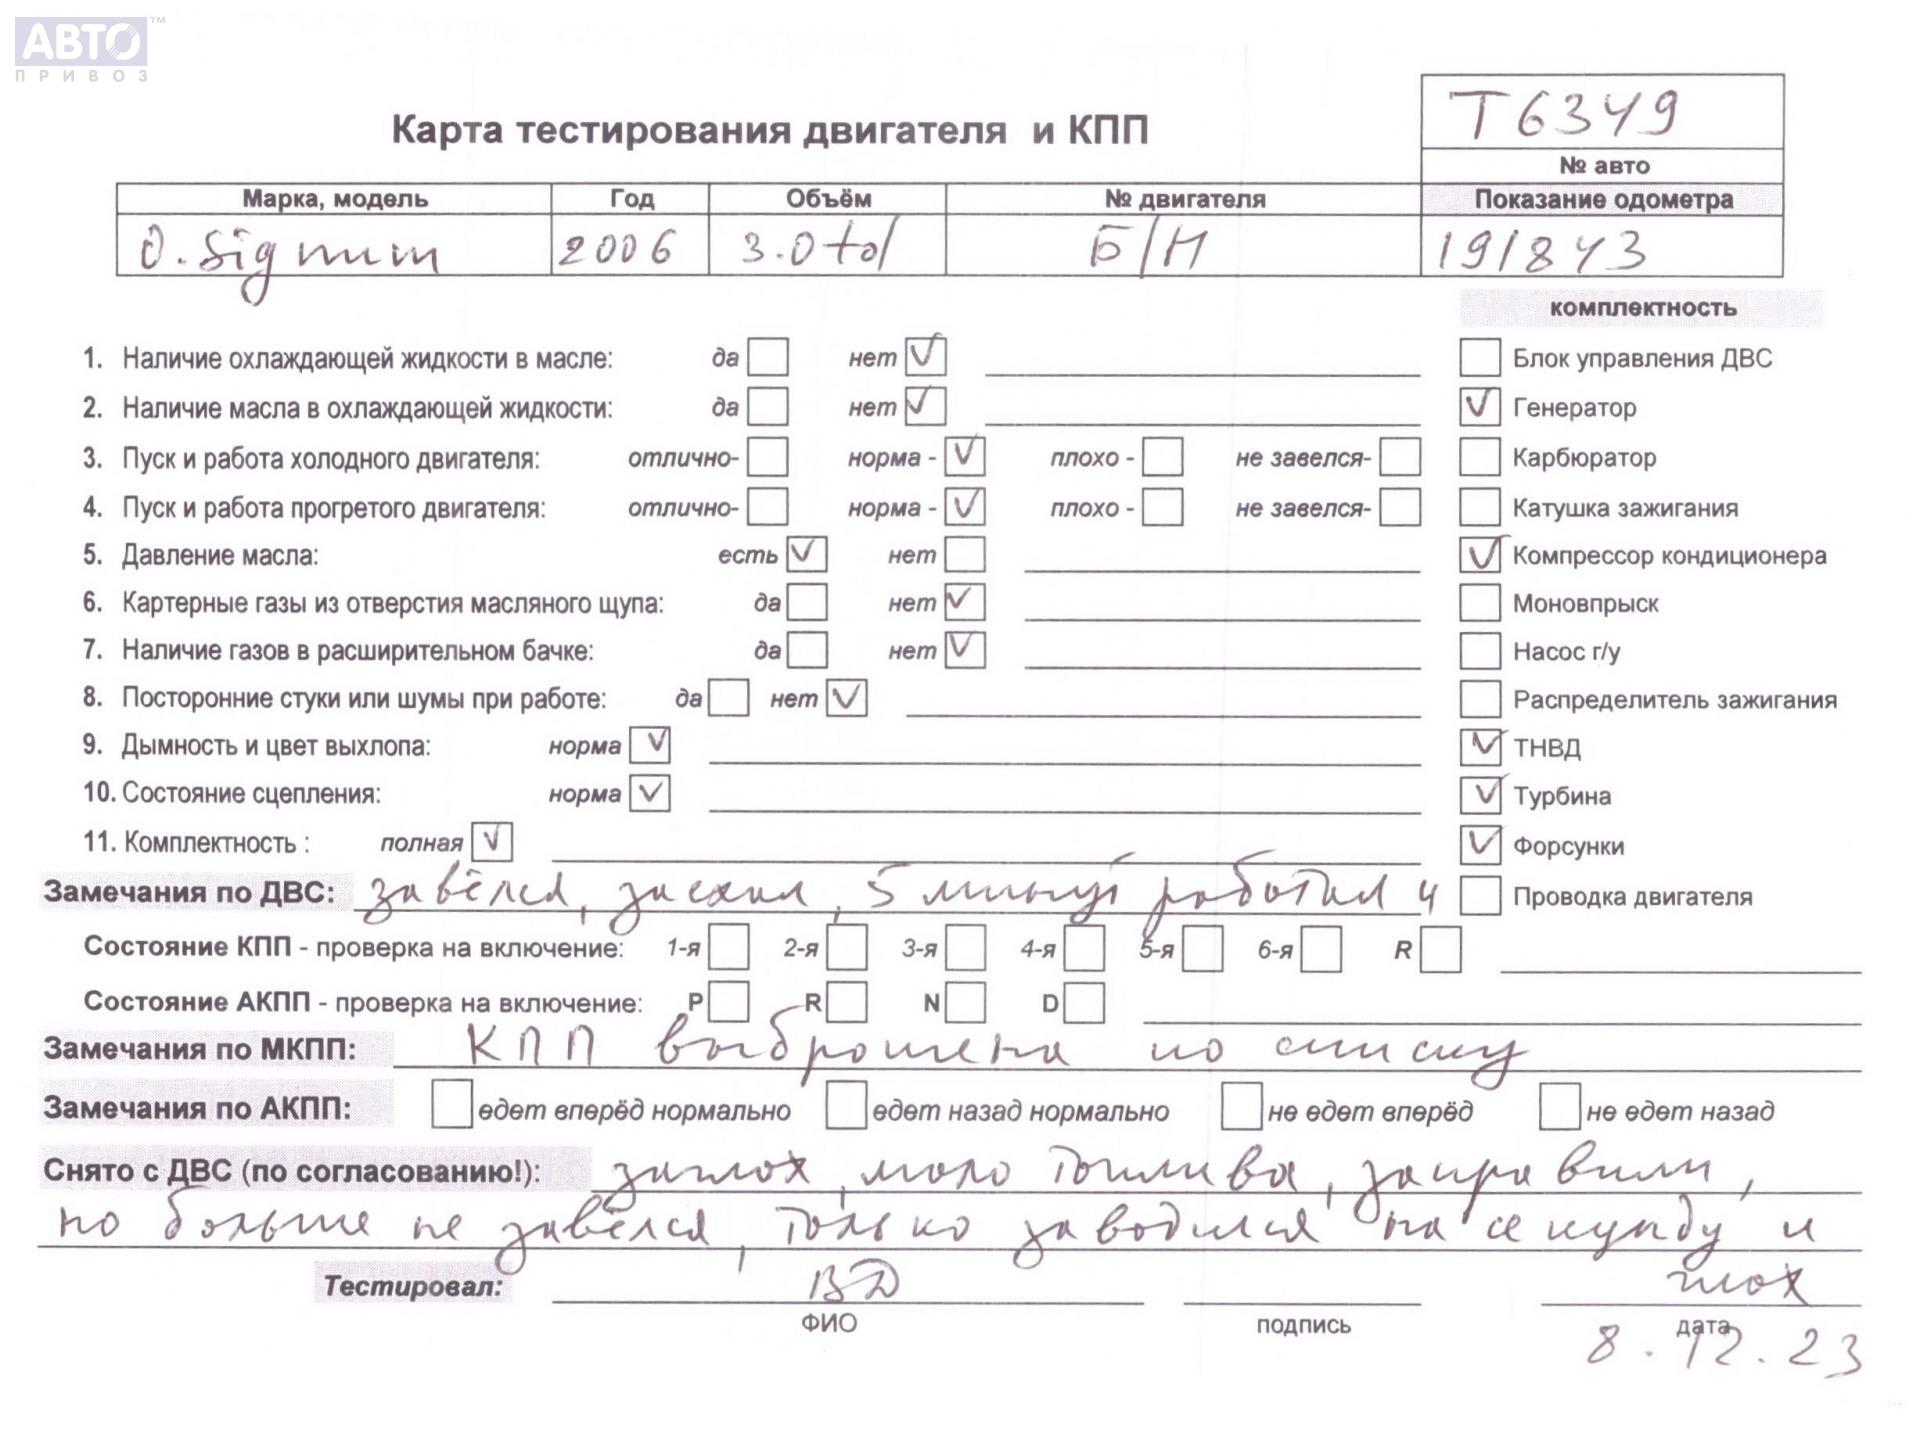 АВТО™
ПРИВОЗ
Т6349
Карта тестирования двигателя и КПП
№ авто
Марка, модель Год Объём № двигателя Показание одометра
O. Signum 2006 3.0 td Б/Н 191843
комплектность
1. Наличие охлаждающей жидкости в масле: да нет ✓ Блок управления ДВС
2. Наличие масла в охлаждающей жидкости: да нет ✓ ✓ Генератор
3. Пуск и работа холодного двигателя: отлично- норма - ✓ плохо - не завелся- Карбюратор
4. Пуск и работа прогретого двигателя: отлично- норма - ✓ плохо - не завелся- Катушка зажигания
5. Давление масла: есть ✓ нет ✓ Компрессор кондиционера
6. Картерные газы из отверстия масляного щупа: да нет ✓ Моновпрыск
7. Наличие газов в расширительном бачке: да нет ✓ Насос г/у
8. Посторонние стуки или шумы при работе: да нет ✓ Распределитель зажигания
9. Дымность и цвет выхлопа: норма ✓ ✓ ТНВД
10. Состояние сцепления: норма ✓ ✓ Турбина
11. Комплектность : полная ✓ ✓ Форсунки
Замечания по ДВС: завёлся, заехал, 5 минут работал и Проводка двигателя
Состояние КПП - проверка на включение: 1-я 2-я 3-я 4-я 5-я 6-я R
Состояние АКПП - проверка на включение: P R N D
Замечания по МКПП: КПП выброшена по списку
Замечания по АКПП: едет вперёд нормально едет назад нормально не едет вперёд не едет назад
Снято с ДВС (по согласованию!): заглох, мало топлива, заправили,
но больше не завёлся, только заводился на секунду и
Тестировал: ВД глох
ФИО подпись дата
8.12.23